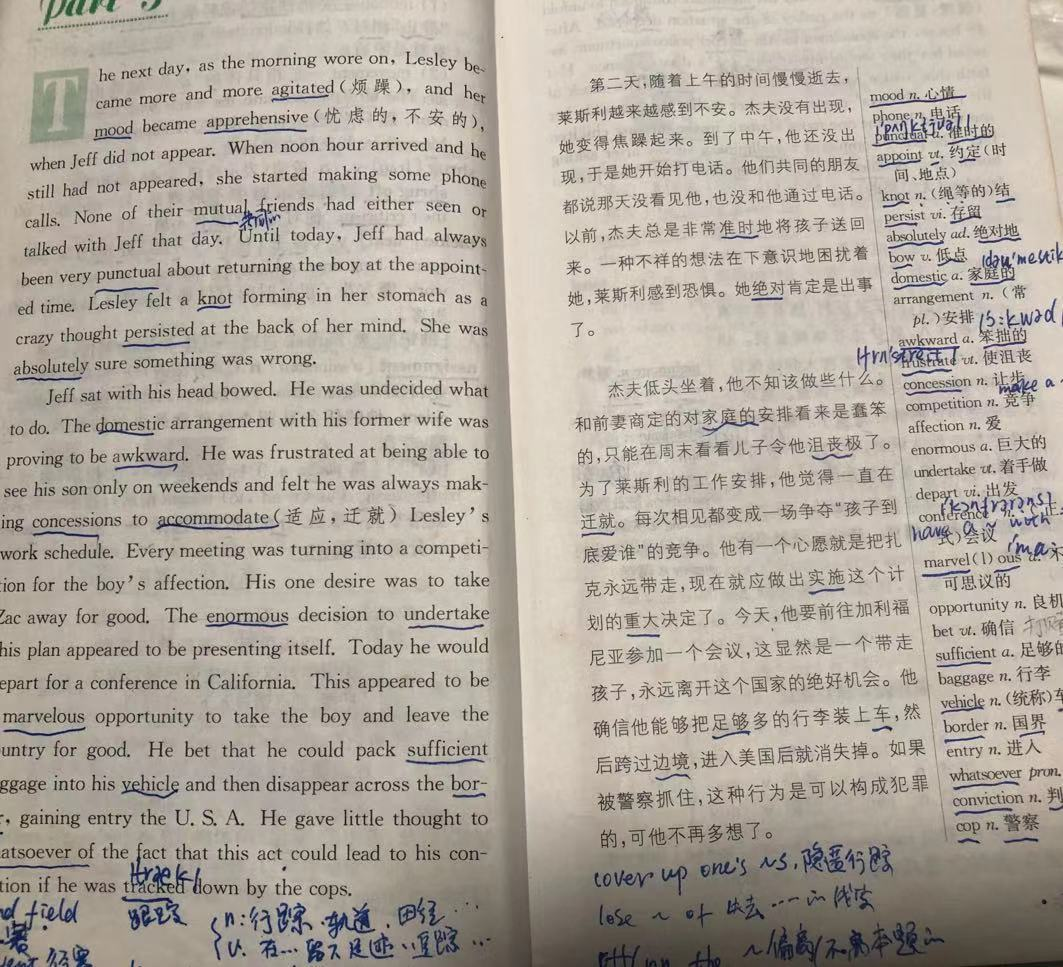 part 3
The next day, as the morning wore on, Lesley be-
came more and more agitated (烦躁), and her
mood became apprehensive (忧虑的，不安的),
when Jeff did not appear. When noon hour arrived and he
still had not appeared, she started making some phone
calls. None of their mutual friends had either seen or
talked with Jeff that day. Until today, Jeff had always
been very punctual about returning the boy at the appoint-
ed time. Lesley felt a knot forming in her stomach as a
crazy thought persisted at the back of her mind. She was
absolutely sure something was wrong.
Jeff sat with his head bowed. He was undecided what
to do. The domestic arrangement with his former wife was
proving to be awkward. He was frustrated at being able to
see his son only on weekends and felt he was always mak-
ing concessions to accommodate (适应，迁就) Lesley's
work schedule. Every meeting was turning into a competi-
tion for the boy's affection. His one desire was to take
Zac away for good. The enormous decision to undertake
his plan appeared to be presenting itself. Today he would
epart for a conference in California. This appeared to be
marvelous opportunity to take the boy and leave the
untry for good. He bet that he could pack sufficient
ggage into his vehicle and then disappear across the bor-
r, gaining entry the U. S. A. He gave little thought to
atsoever of the fact that this act could lead to his con-
tion if he was tracked down by the cops.
field
跟踪
n: 行踪、轨道、田径…
v. 在…留下足迹、追踪…
第二天，随着上午的时间慢慢逝去，
莱斯利越来越感到不安。杰夫没有出现，
她变得焦躁起来。到了中午，他还没出
现，于是她开始打电话。他们共同的朋友
都说那天没看见他，也没和他通过电话。
以前，杰夫总是非常准时地将孩子送回
来。一种不祥的想法在下意识地困扰着
她，莱斯利感到恐惧。她绝对肯定是出事
了。
杰夫低头坐着，他不知该做些什么。
和前妻商定的对家庭的安排看来是蠢笨
的，只能在周末看看儿子令他沮丧极了。
为了莱斯利的工作安排，他觉得一直在
迁就。每次相见都变成一场争夺“孩子到
底爱谁”的竞争。他有一个心愿就是把扎
克永远带走，现在就应做出实施这个计
划的重大决定了。今天，他要前往加利福
尼亚参加一个会议，这显然是一个带走
孩子，永远离开这个国家的绝好机会。他
确信他能够把足够多的行李装上车，然
后跨过边境，进入美国后就消失掉。如果
被警察抓住，这种行为是可以构成犯罪
的，可他不再多想了。
cover up one's ~s, 隐匿行踪
lose ~ of 失去…的线索
the ~/偏离/不离本题的
mood n. 心情
phone n. 电话
punctual a. 准时的
appoint vt. 约定(时
间、地点)
knot n. (绳等的)结
persist vi. 存留
absolutely ad. 绝对地
bow v. 低点
domestic a. 家庭的
arrangement n. (常
pl.)安排
awkward a. 笨拙的
frustrate vt. 使沮丧
concession n. 让步
make a
competition n. 竞争
affection n. 爱
enormous a. 巨大的
undertake vt. 着手做
depart vi. 出发
conference
have a ~ with
式)会议
marvel(l)ous a. 不
可思议的
opportunity n. 良机
bet vt. 确信
sufficient a. 足够的
baggage n. 行李
vehicle n. (统称)车
border n. 国界
entry n. 进入
whatsoever pron.
conviction n. 判
cop n. 警察